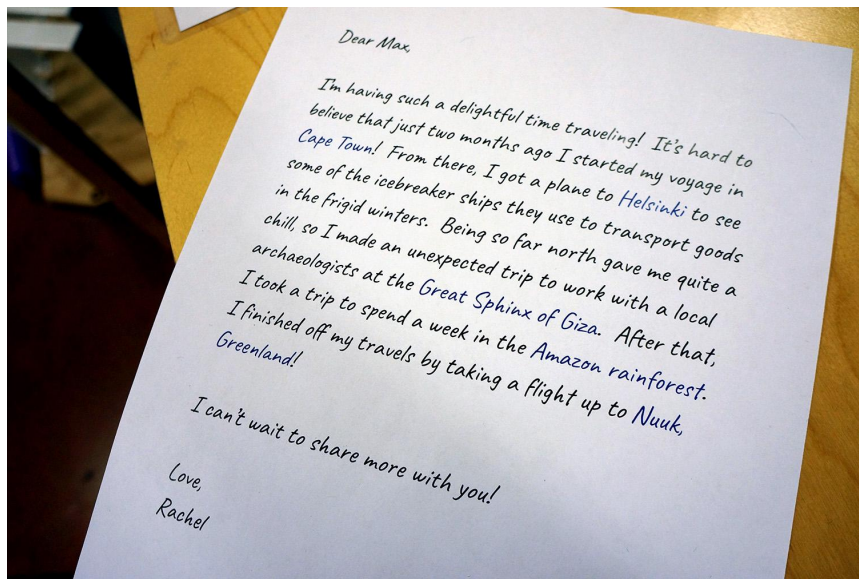 Dear Max,
I'm having such a delightful time traveling! It's hard to
believe that just two months ago I started my voyage in
Cape Town! From there, I got a plane to Helsinki to see
some of the icebreaker ships they use to transport goods
in the frigid winters. Being so far north gave me quite a
chill, so I made an unexpected trip to work with a local
archaeologists at the Great Sphinx of Giza. After that,
I took a trip to spend a week in the Amazon rainforest.
I finished off my travels by taking a flight up to Nuuk,
Greenland!
I can't wait to share more with you!
Love,
Rachel